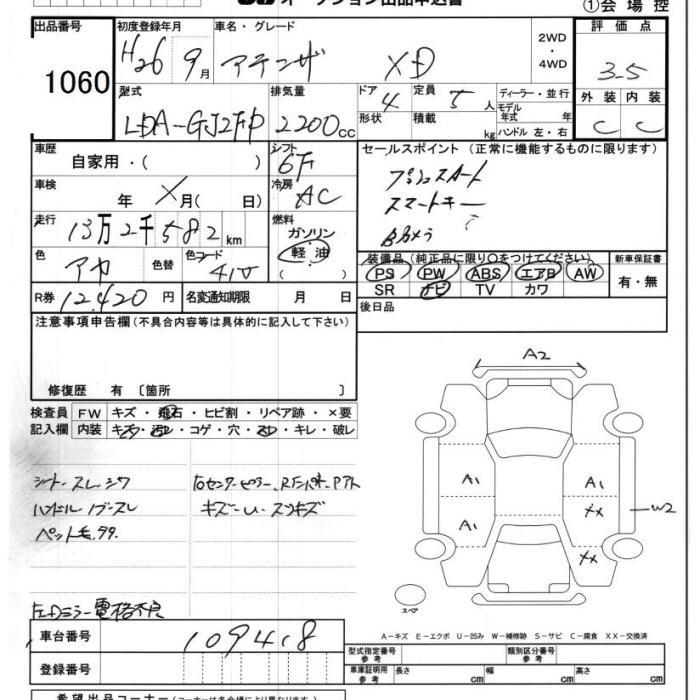 オークション出品申込書
①会場控
出品番号
1060
初度登録年月
H26 9月
車名・グレード
アテンザ XD
2WD
・
4WD
評価点
3.5
型式
LDA-GJ2FP
排気量
2200cc
ドア
4
形状
定員
5人
積載
kg
ディーラー・並行
モデル年式 年
ハンドル 左・右
外装 内装
C C
車歴
自家用・( )
シフト
6F
車検
年 X月( 日)
冷房
AC
走行
13万2千582km
燃料
ガソリン
軽油
( )
色
アカ
色替
色コード
41V
R券
12,420円
名変通知期限 月 日
セールスポイント(正常に機能するものに限ります)
プッシュスタート
スマートキー
Bカメラ
装備品(純正品に限り○をつけてください)
PS PW ABS エアB AW
SR ナビ TV カワ
新車保証書
有・無
後日品
注意事項申告欄(不具合内容等は具体的に記入して下さい)
修復歴 有〔箇所 〕
検査員 FW キズ・飛石・ヒビ割・リペア跡・×要
記入欄 内装 キズ・汚レ・コゲ・穴・スレ・キレ・破レ
シートスレ、シワ
ハンドル ノブスレ
ペット毛
右センターピラー、Rフェンダー
左ドアミラー電格不良
A2
A1 A1
A1 XX
W2
XX
スペア
A-キズ E-エクボ U-凹み W-補修跡 S-サビ C-腐食 XX-交換済
車台番号
109418
登録番号
型式指定番号 参考
類別区分番号 参考
車庫証明用 参考
長さ cm
幅 cm
高さ cm
希望出品コーナー